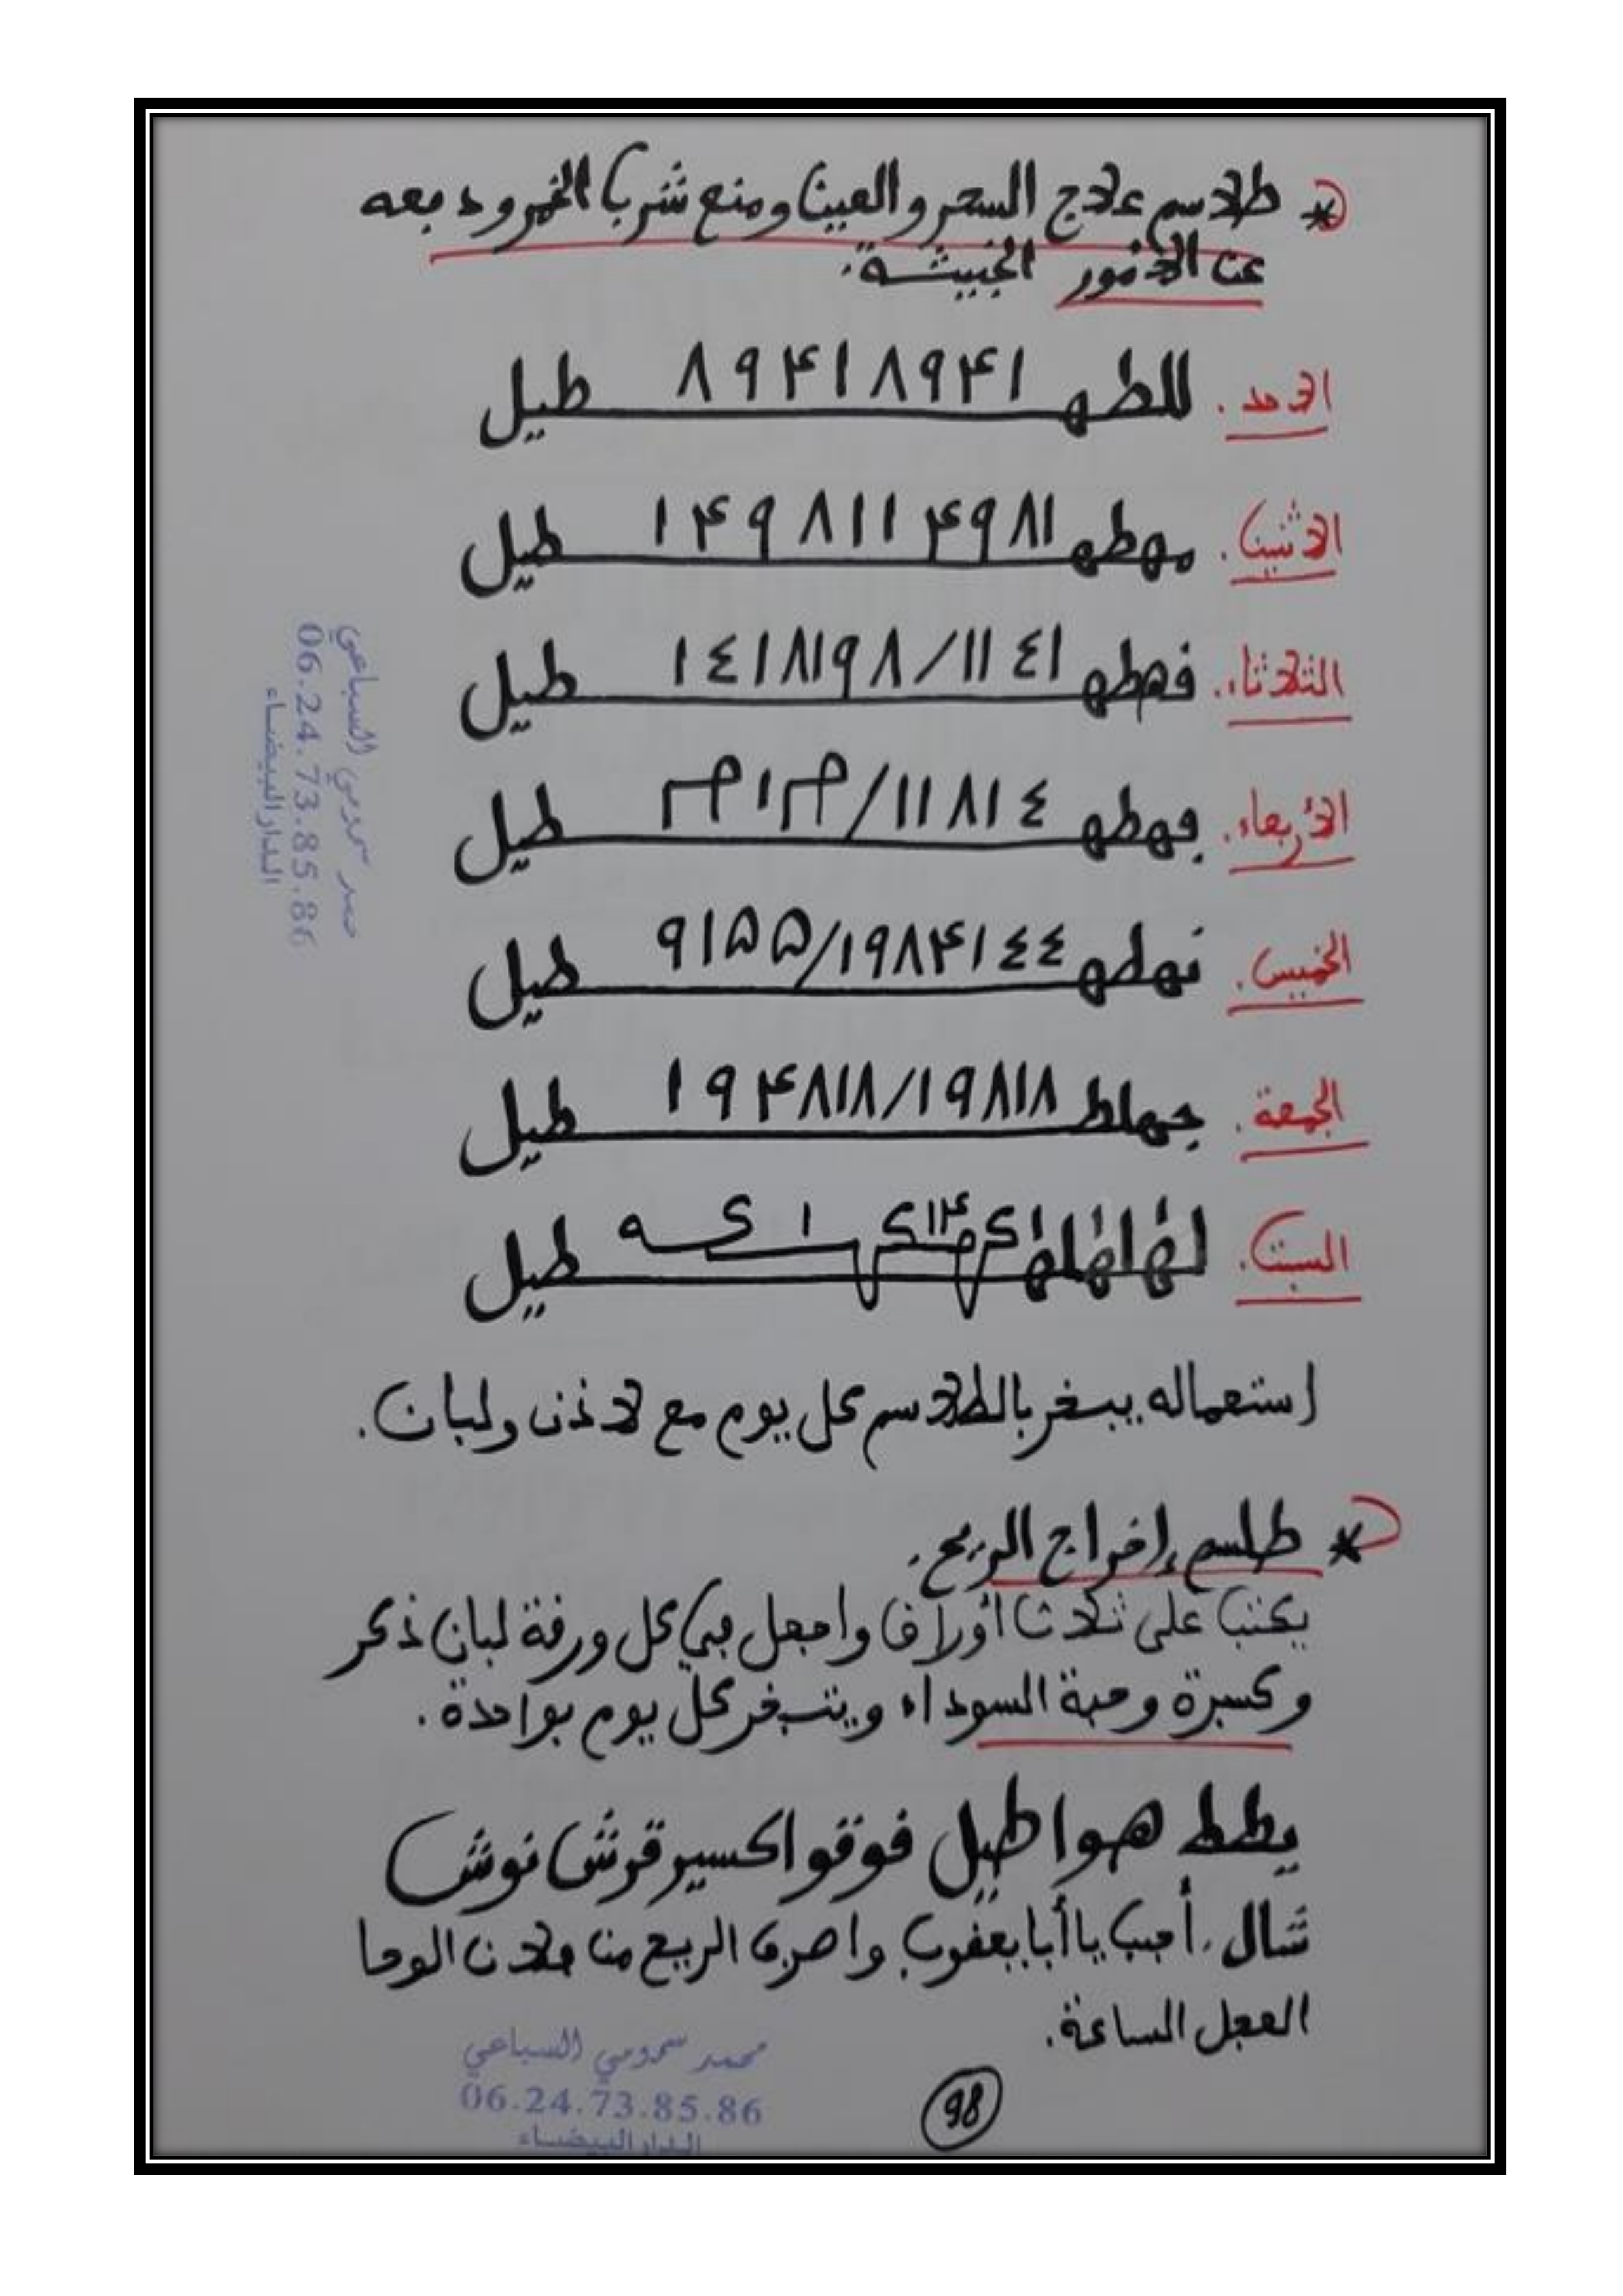 * طلاسم علاج السحر والعين ومنع شرب الخمر ودبعه
عن الأمور الخبيثة.
الاحد. للطهر ٨٩۴١٨٩۴١ طيل
الاثنين. مهطهر ١۴٩٨١١۴٩٨١ طيل
الثلاثاء. فهطهر ١٤١٨١٩٨/١١٤١ طيل
الأربعاء. فهطهر /١١٨١٤ طيل
الخميس. نهطهر ٩١۵۵/١٩٨۴١٤٤ طيل
الجمعة. جهلط ١٩۴٨١٨/١٩٨١٨ طيل
السبت. طيل
استعماله يبخر بالطلاسم كل يوم مع لاذن ولبان.
* طلسم إخراج الريح.
يكتب على ثلاث أوراق واجعل في كل ورقة لبان ذكر
وكسبرة وحبة السوداء ويتبخر كل يوم بواحدة.
يطط هوا طيل فوقو اكسير قرش نوش
شال. أجب يا أبا يعقوب واصرف الريح من فلان الوحا
العجل الساعة.
محمد سحرومي السباعي
06.24.73.85.86
الدار البيضاء
98
محمد سحرومي السباعي
06.24.73.85.86
الدار البيضاء